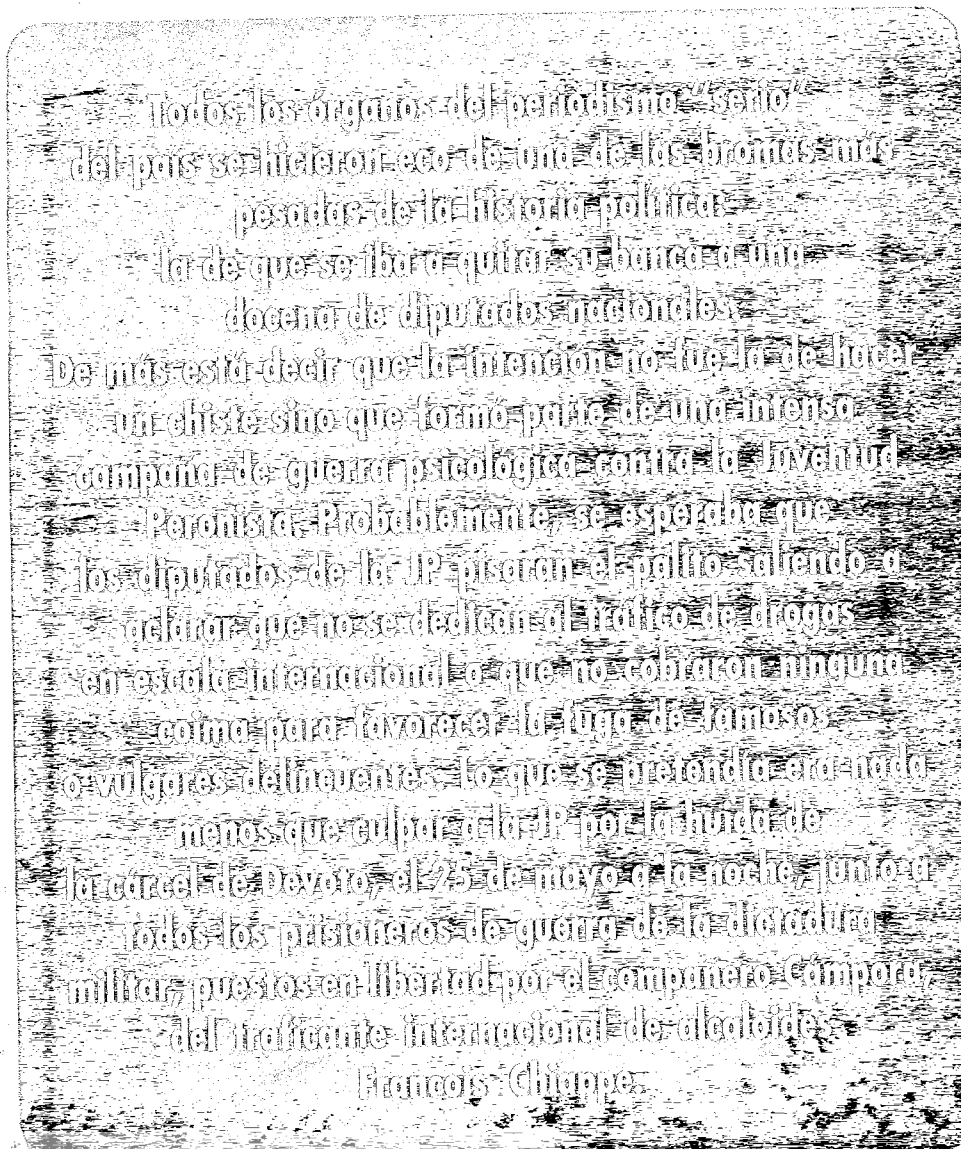 Todos los órganos del periodismo "serio"
del país se hicieron eco de una de las bromas más
pesadas de la historia política:
la de que se iba a quitar su banca a una
docena de diputados nacionales.
De más está decir que la intención no fue la de hacer
un chiste sino que formó parte de una intensa
campaña de guerra psicológica contra la Juventud
Peronista. Probablemente, se esperaba que
los diputados de la JP pisaran el palito saliendo a
aclarar que no se dedican al tráfico de drogas
en escala internacional o que no cobraron ninguna
coima para favorecer la fuga de famosos
o vulgares delincuentes. Lo que se pretendía era nada
menos que culpar a la JP por la huida de
la cárcel de Devoto, el 25 de mayo a la noche, junto a
todos los prisioneros de guerra de la dictadura
militar, puestos en libertad por el compañero Cámpora,
del traficante internacional de alcaloides
Francois Chiappe.